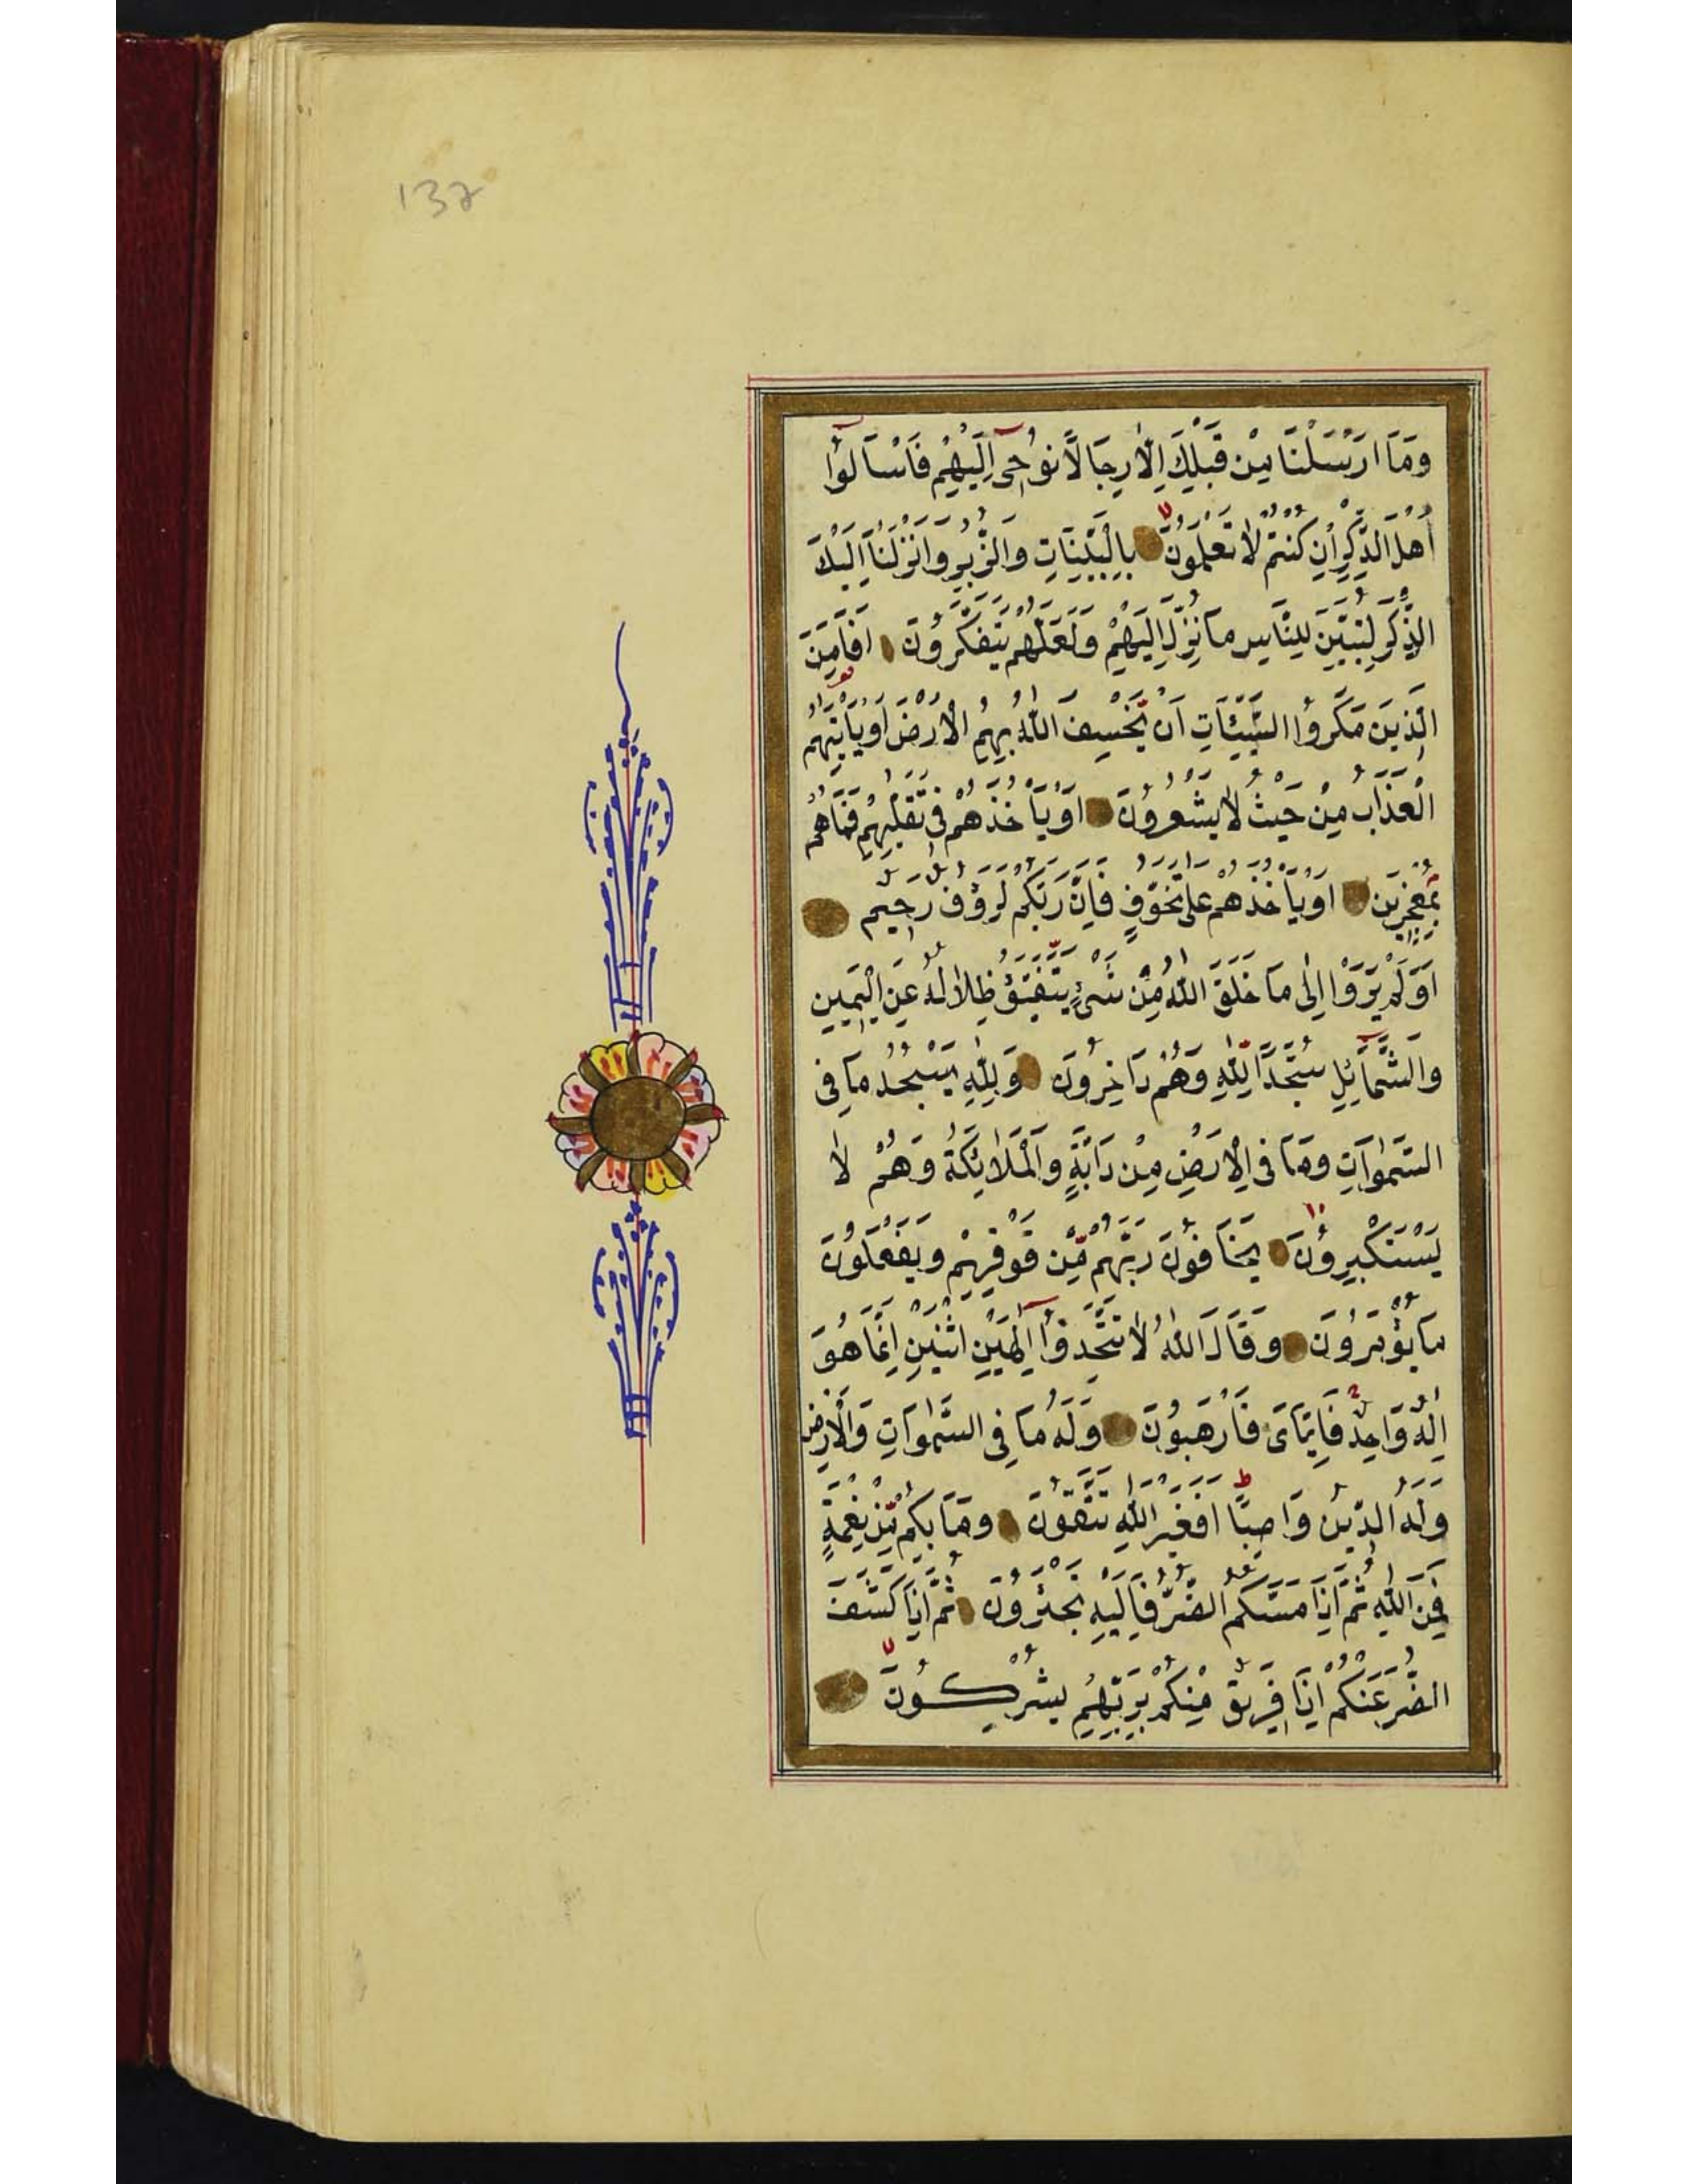 137
وَمَا اَرْسَلْنَا مِنْ قَبْلِكَ اِلَّا رِجَالًا نُوحٖى اِلَيْهِمْ فَاسْاَلُوا
اَهْلَ الذِّكْرِ اِنْ كُنْتُمْ لَا تَعْلَمُونَ بِالْبَيِّنَاتِ وَالزُّبُرِ وَاَنْزَلْنَا اِلَيْكَ
الذِّكْرَ لِتُبَيِّنَ لِلنَّاسِ مَا نُزِّلَ اِلَيْهِمْ وَلَعَلَّهُمْ يَتَفَكَّرُونَ اَفَاَمِنَ
الَّذِينَ مَكَرُوا السَّيِّئَاتِ اَنْ يَخْسِفَ اللّٰهُ بِهِمُ الْاَرْضَ اَوْ يَاْتِيَهُمُ
الْعَذَابُ مِنْ حَيْثُ لَا يَشْعُرُونَ اَوْ يَاْخُذَهُمْ فِى تَقَلُّبِهِمْ فَمَا هُمْ
بِمُعْجِزِينَ اَوْ يَاْخُذَهُمْ عَلٰى تَخَوُّفٍ فَاِنَّ رَبَّكُمْ لَرَؤُفٌ رَحِيمٌ
اَوَلَمْ يَرَوْا اِلٰى مَا خَلَقَ اللّٰهُ مِنْ شَىْءٍ يَتَفَيَّؤُ ظِلَالُهُ عَنِ الْيَمِينِ
وَالشَّمَائِلِ سُجَّدًا لِلّٰهِ وَهُمْ دَاخِرُونَ وَلِلّٰهِ يَسْجُدُ مَا فِى
السَّمٰوَاتِ وَمَا فِى الْاَرْضِ مِنْ دَابَّةٍ وَالْمَلَائِكَةُ وَهُمْ لَا
يَسْتَكْبِرُونَ يَخَافُونَ رَبَّهُمْ مِنْ فَوْقِهِمْ وَيَفْعَلُونَ
مَا يُؤْمَرُونَ وَقَالَ اللّٰهُ لَا تَتَّخِذُوا اِلٰهَيْنِ اثْنَيْنِ اِنَّمَا هُوَ
اِلٰهٌ وَاحِدٌ فَاِيَّاىَ فَارْهَبُونِ وَلَهُ مَا فِى السَّمٰوَاتِ وَالْاَرْضِ
وَلَهُ الدِّينُ وَاصِبًا اَفَغَيْرَ اللّٰهِ تَتَّقُونَ وَمَا بِكُمْ مِنْ نِعْمَةٍ
فَمِنَ اللّٰهِ ثُمَّ اِذَا مَسَّكُمُ الضُّرُّ فَاِلَيْهِ تَجْئَرُونَ ثُمَّ اِذَا كَشَفَ
الضُّرَّ عَنْكُمْ اِذَا فَرِيقٌ مِنْكُمْ بِرَبِّهِمْ يُشْرِكُونَ